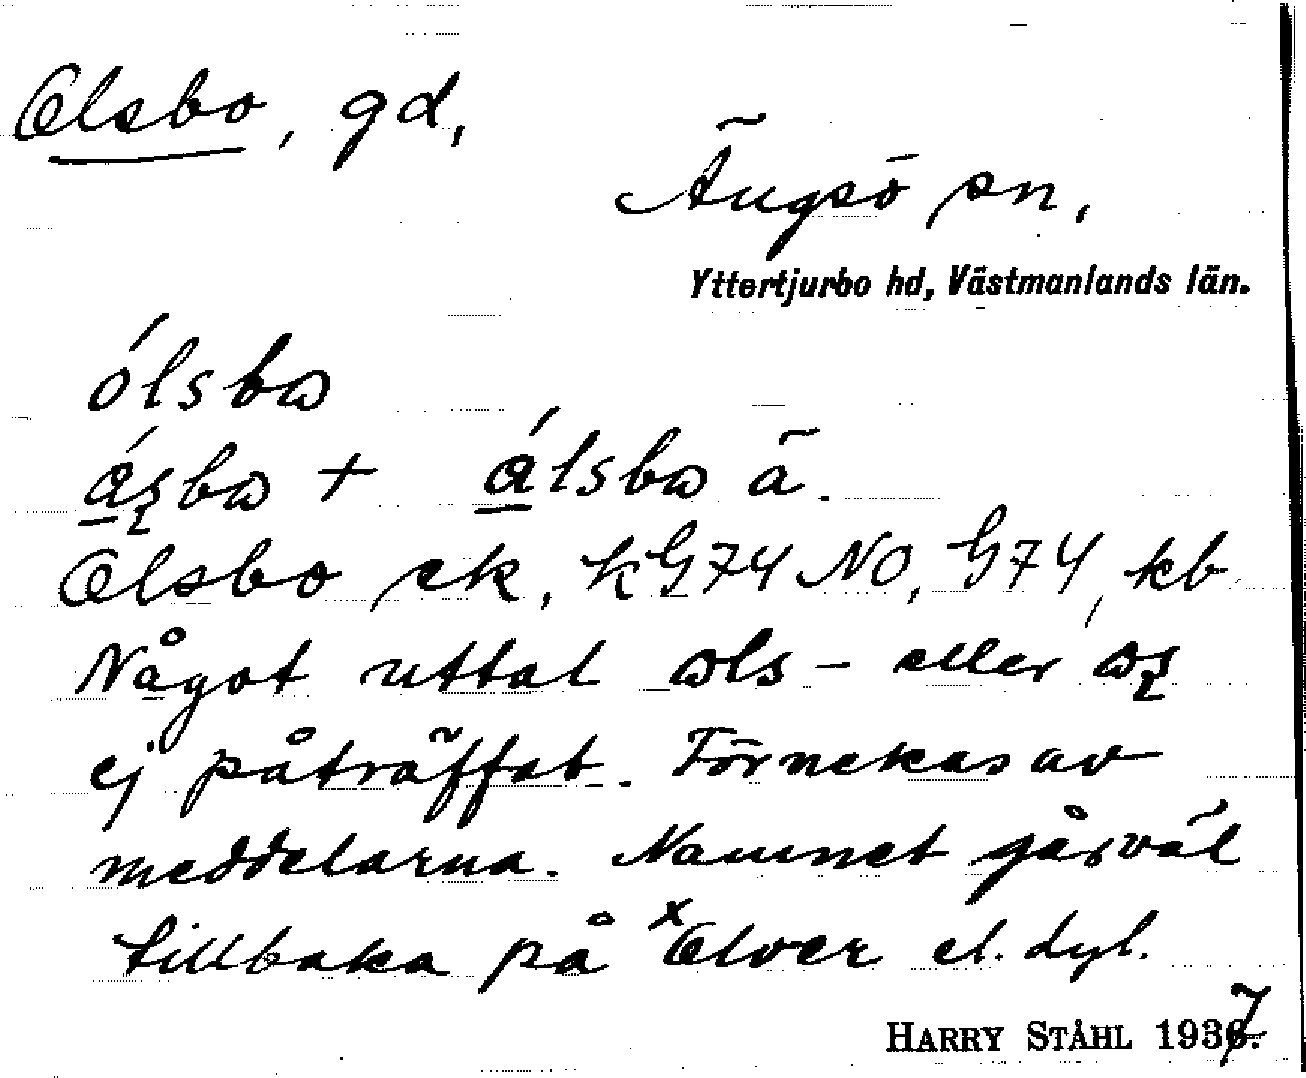 Olsbo, gd,
Ängsö sn,
Yttertjurbo hd, Västmanlands län.
ólsbɷ
áʂbɷ + álsbɷ ä.
Olsbo ek, kG74 NO, G74, kb
Något uttal ɷls- eller ɷʂ
ej påträffat. Förnekas av
meddelarna. Namnet går väl
tillbaka på ˣOlver el. dyl.
HARRY STÅHL 1937.